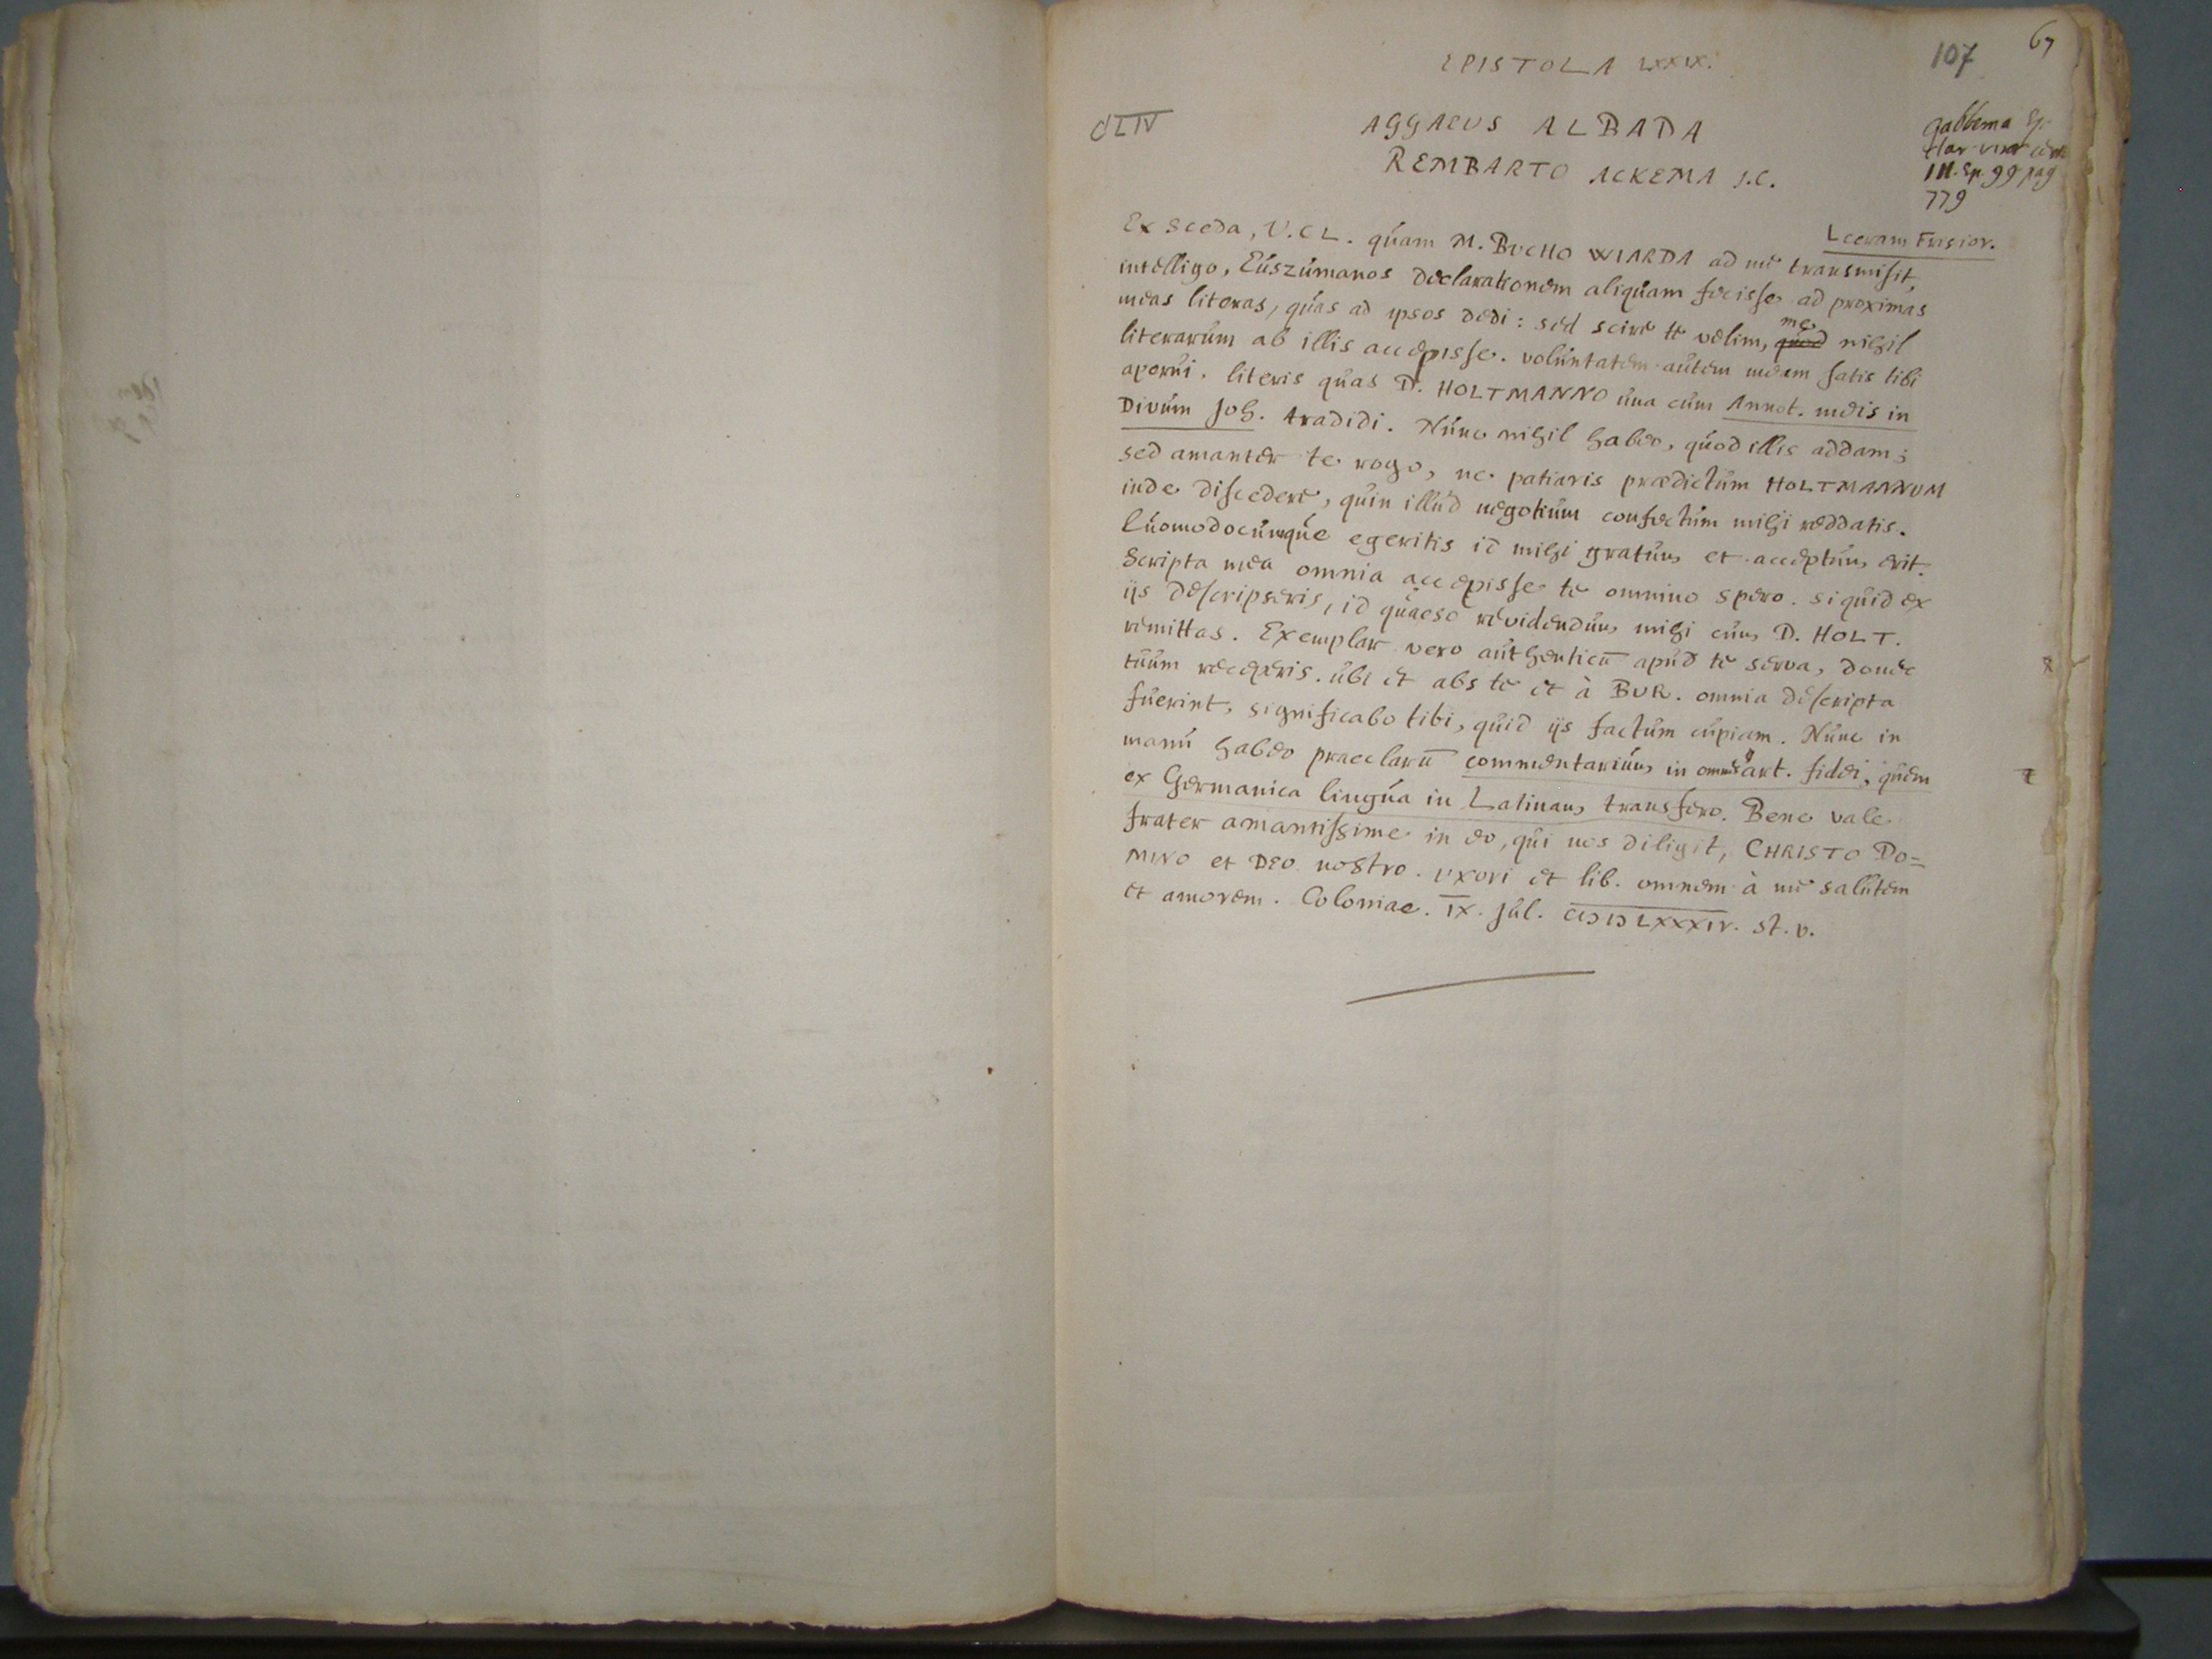 67
107
EPISTOLA LXXIX.
CLIV
AGGAEUS ALBADA
REMBARTO ACKEMA J.C.
Gabbema Ep.
Clar vir
III. Ep. 99 pag
779
Leeram Frisior.
Ex sceda, V.CL. quam M. BVCHO WIARDA ad me transmisit,
intelligo, Euszumanos declarationem aliquam fecisse ad proximas
meas literas, quas ad ipsos dedi: sed scire te velim, quod me nihil
literarum ab illis accepisse. voluntatem autem meam satis tibi
aperui. literis quas D. HOLTMANNO una cum Annot. meis in
Divum Joh. tradidi. Nunc nihil habeo, quod illis addam;
sed amanter te rogo, ne patiaris praedictum HOLTMANNUM
inde discedere, quin illud negotium confectum mihi reddatis.
Quomodocumque egeritis id mihi gratum et acceptum erit.
Scripta mea omnia accepisse te omnino spero. si quid ex
ijs descripseris, id quaeso revidendum mihi cum D. HOLT.
remittas. Exemplar vero authenticū apud te serva, donec
tuum receperis. ubi et abs te et à BUR. omnia descripta
fuerint, significabo tibi, quid ijs factum cupiam. Nunc in
manu habeo praeclarū commentarium in omnes art. fidei, quem
ex Germanica lingua in Latinam transfero. Bene vale
frater amantissime in eo, qui nos diligit, CHRISTO DO=
MINO et DEO nostro. uxori et lib. omnem à me salutem
et amorem. Coloniae. IX. Jul. CIƆIƆLXXXIV. st. v.